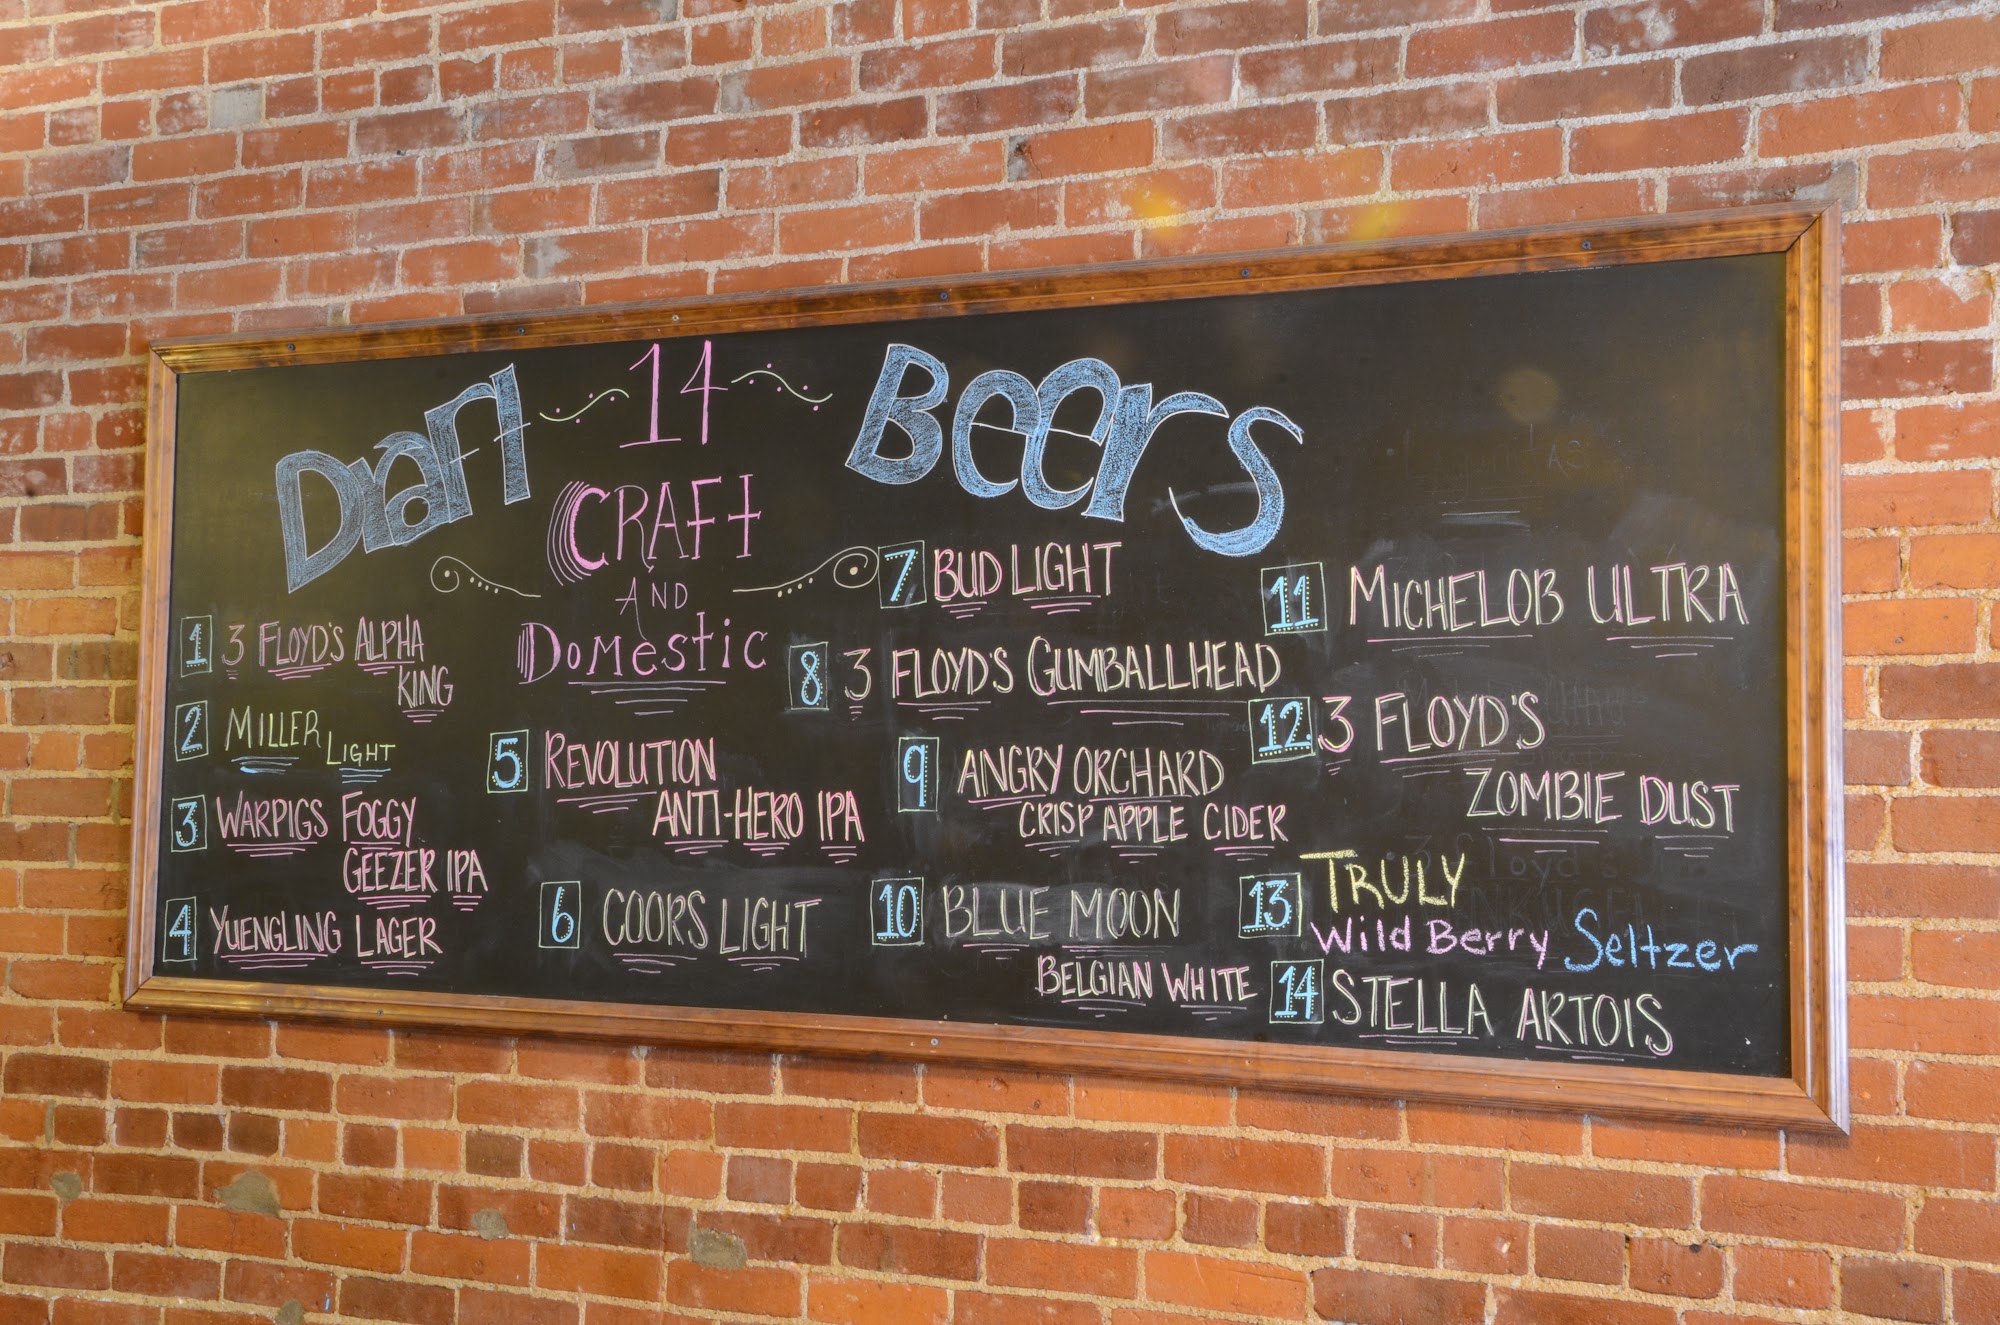 Draft 14 Beers
CRAFT
AND
DOMESTIC
1 3 FLOYD'S ALPHA
KING
2 MILLER LIGHT
3 WARPIGS FOGGY
GEEZER IPA
4 YUENGLING LAGER
5 REVOLUTION
ANTI-HERO IPA
6 COORS LIGHT
7 BUD LIGHT
8 3 FLOYD'S GUMBALLHEAD
9 ANGRY ORCHARD
CRISP APPLE CIDER
10 BLUE MOON
BELGIAN WHITE
11 MICHELOB ULTRA
12. 3 FLOYD'S
ZOMBIE DUST
13 TRULY
Wild Berry Seltzer
14 STELLA ARTOIS